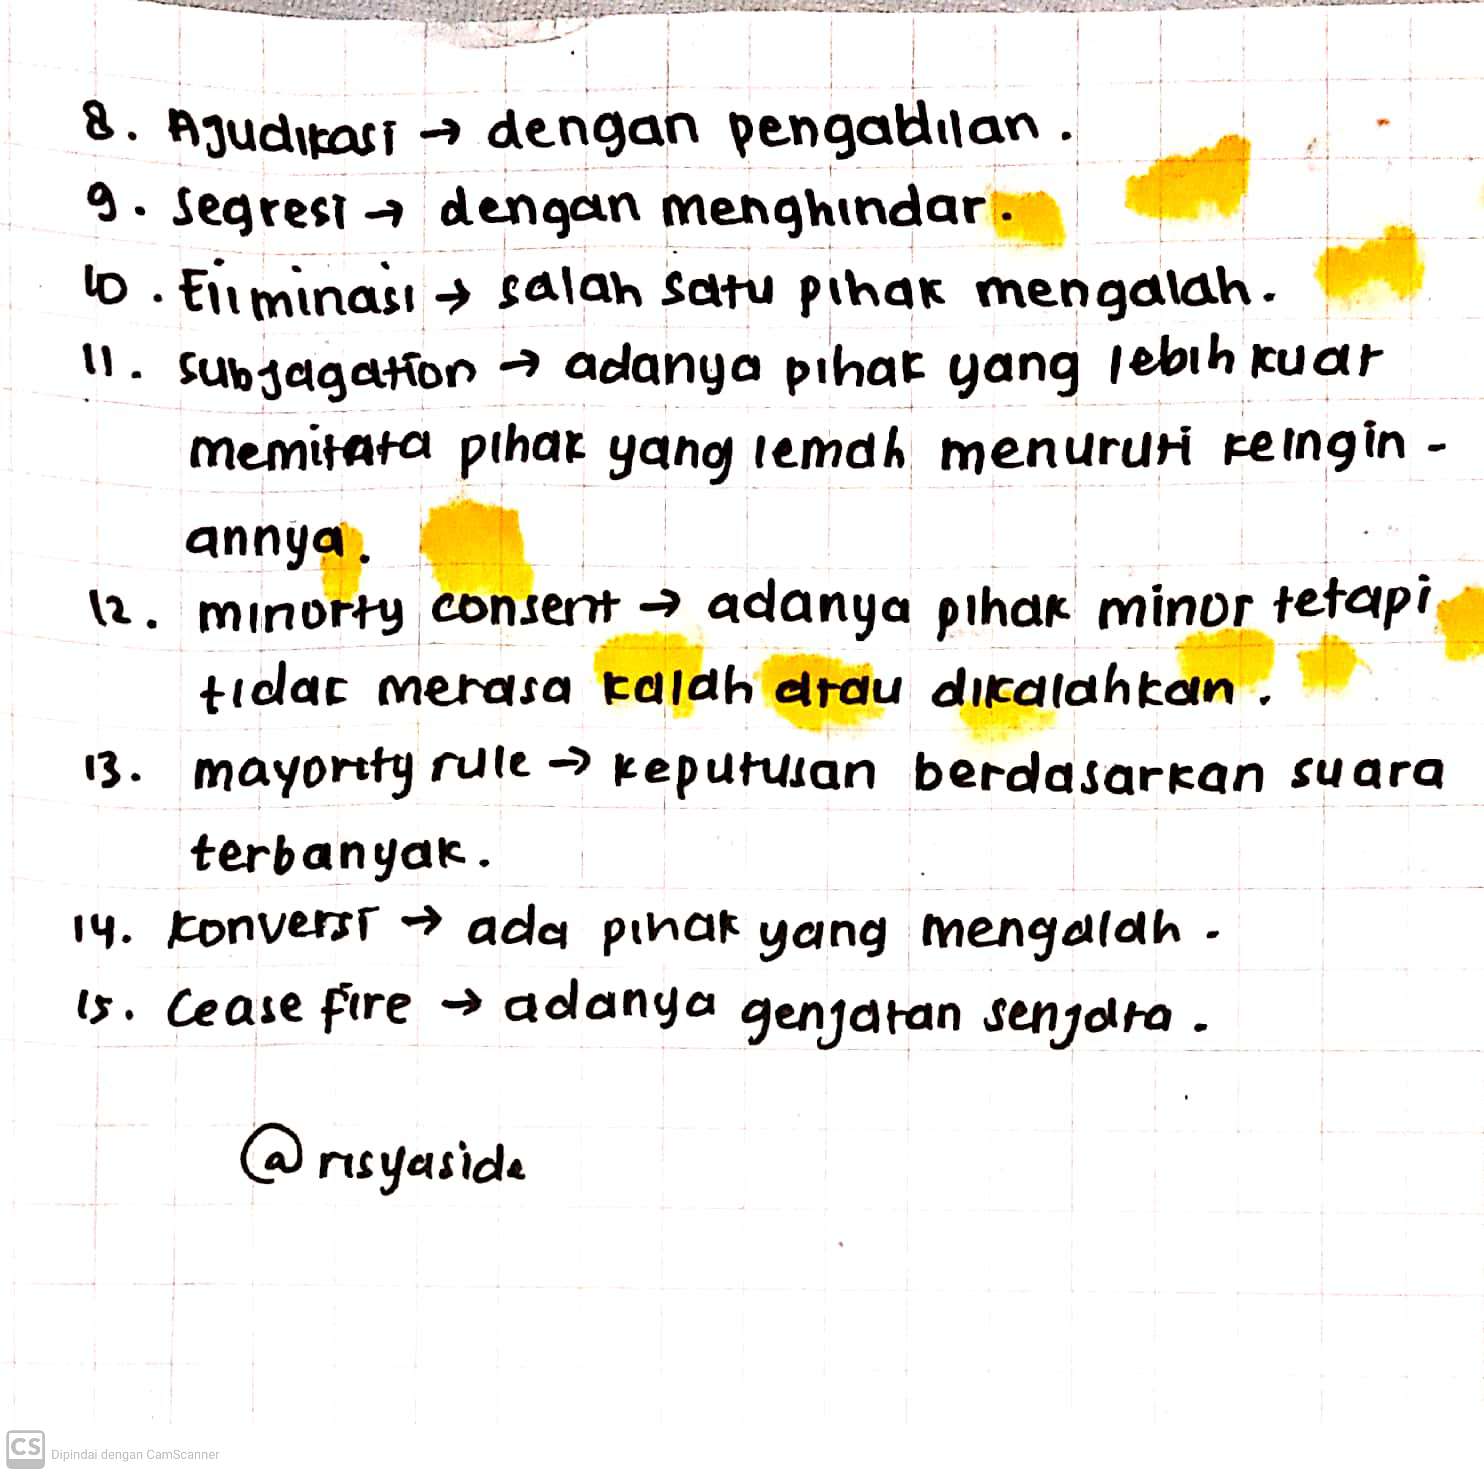 8. Ajudikasi → dengan pengadilan.
9. segresi → dengan menghindar.
10. Eliminasi → salah satu pihak mengalah.
11. subjagation → adanya pihak yang lebih kuat
memitata pihak yang lemah menuruti keingin -
annya.
12. minority consent → adanya pihak minor tetapi
tidak merasa kalah atau dikalahkan.
13. mayority rule → keputusan berdasarkan suara
terbanyak.
14. konversi → ada pihak yang mengalah.
15. Cease fire → adanya genjatan senjata.
@risyaside
CS Dipindai dengan CamScanner